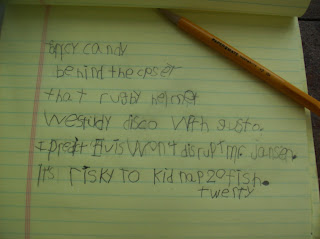 candy
behind the
that rugby helmet
We study disco with gusto.
I predit Elvis Won't disrupt mr. jansen.
It's risky to kidnap 20 fish.
twenty